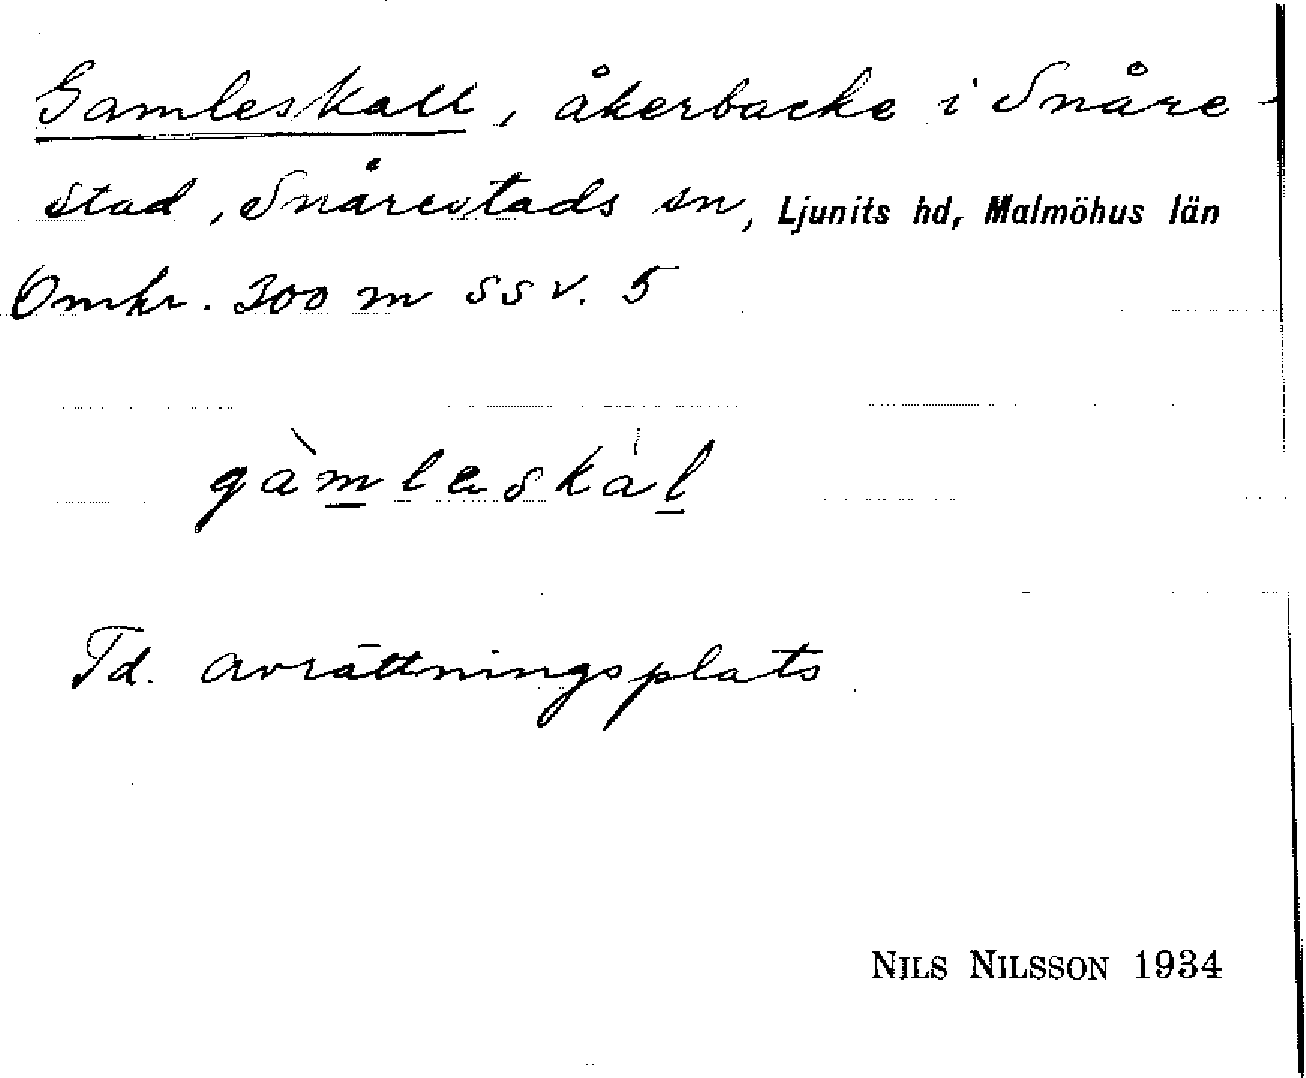 Gamleskall, åkerbacke i Snåre-
stad, Snårestads sn, Ljunits hd, Malmöhus län
Omkr. 300 m SSV. 5
gàmleskál
Td. avrättningsplats
NILS NILSSON 1934